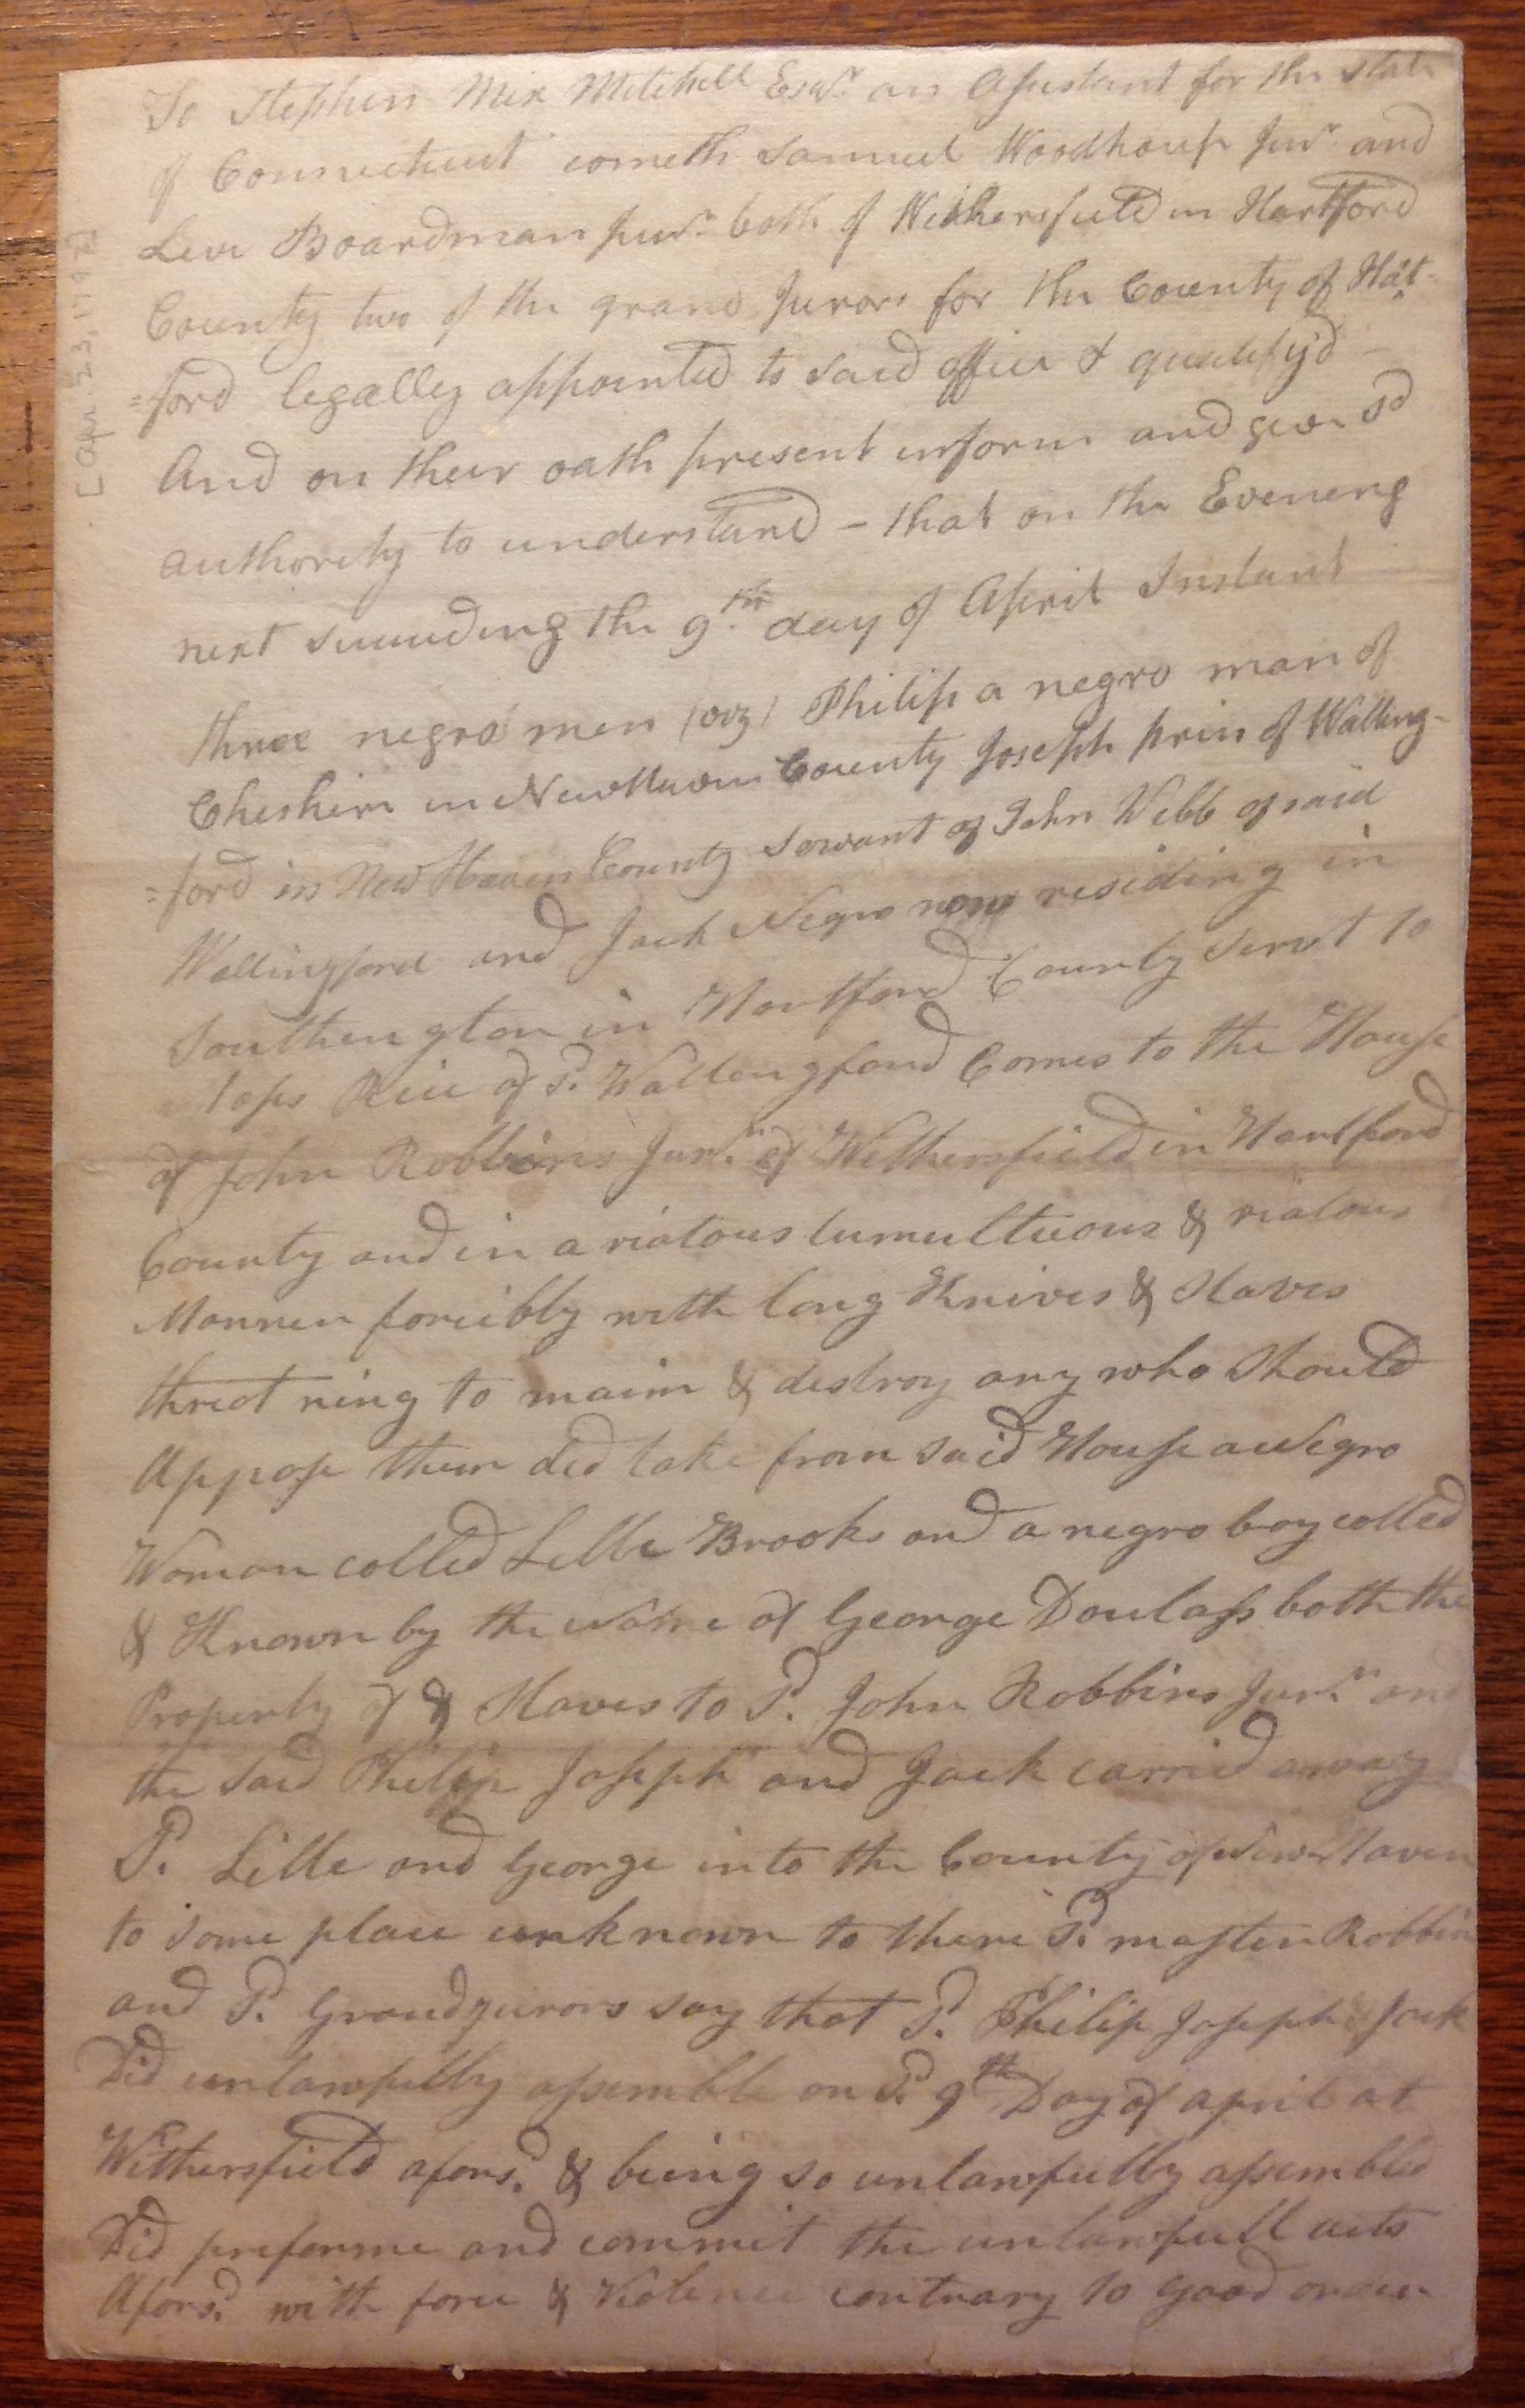 To Stephen Mix Mitchell Esqr. an Assistant for the State
of Connecticut cometh Samuel Woodhouse Junr. and
Levi Boardman Junr. both of Wethersfield in Hartford
County two of the grand Jurors for the County of Hat-
=ford legally appointed to said office & qualify'd –
And on their oath present inform and give sd
authority to understand – that on the Evening
next succeeding the 9th. day of April Instant
three negro men (viz) Philip a negro man of
Cheshire in New Haven County Joseph prin of Walling-
=ford in New Haven County Servant of John Webb of said
Wallingford and Jack Negro now residing in
Southington in Hartford County Servt to
Rice of Sd. Wallengford Comes to the House
of John Robbins Junr. of Wethersfield in Hartford
County and in a riatous tumultuous & riatous
Manner forcibly with long Knives & Staves
thret ning to maim & destroy any who Should
Appose them did take from said House a Negro
Woman colled Lille Brooks and a negro boy colled
& Known by the Name of George Doulass both the
Property of & Slaves to Sd. John Robbins Junr. and
the said Philip Joseph and Jack carried away
Sd. Lille and George into the County of New Haven
to some place unknown to there Sd. master Robbins
and Sd. Grandjurors say that Sd. Philip Joseph & Jack
Did unlawfully assemble on Sd. 9th Day of april at
Wethersfield afors.d & being so unlawfully assembled
Did preforme and commit the unlawfull acts
Afors.d with force & Violence contrary to good order
[Apr. 23, 179